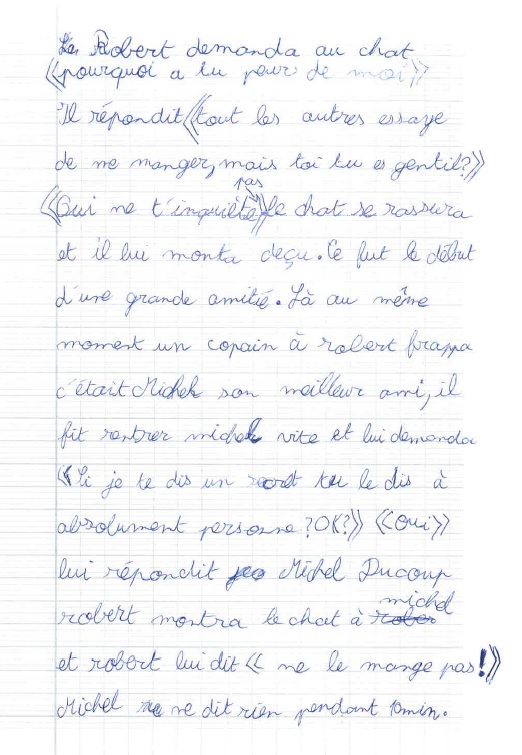 Robert demanda au chat
«pourquoi a tu peur de moi»
Il répondit «tout les autres essaye
de me manger, mais toi tu es gentil?»
pas
«Oui ne t'inquiète» le chat se rassura
et il lui monta deçu. Ce fut le début
d'une grande amitié. Là au même
moment un copain à robert frappa
c'était Michel son meilleur ami, il
fit rentrer michel vite et lui demanda
«Si je te dis un secret tu le dis à
absolument personne? OK?» «Oui»
lui répondit Michel Ducoup
michel
robert montra le chat à rober
et robert lui dit « ne le mange pas!»
Michel ne dit rien pendant 10min.